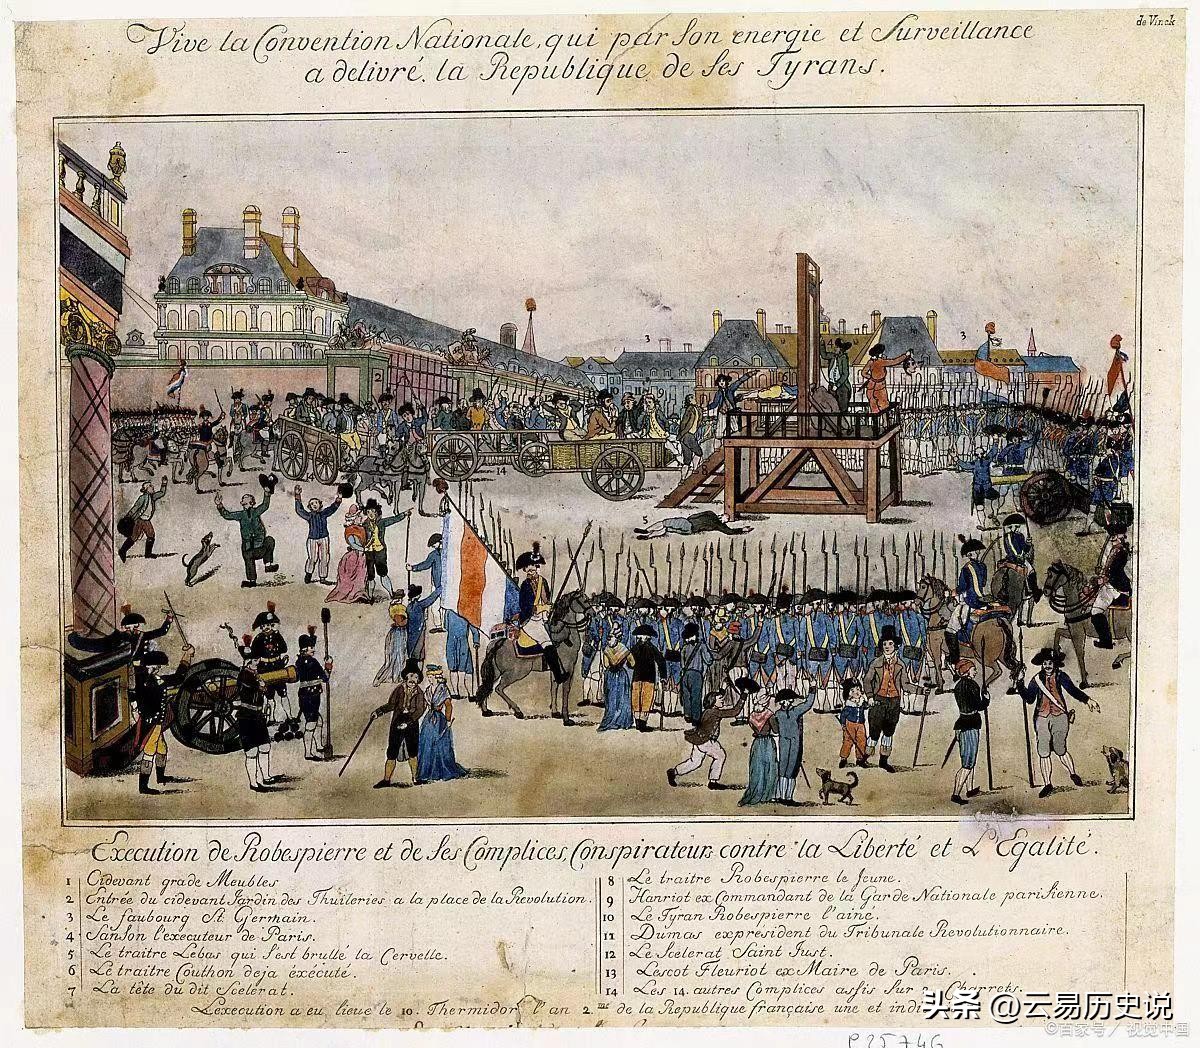 de Vinck
Vive la Convention Nationale, qui par son energie et Surveillance
a delivré la Republique de ses Tyrans.
Execution de Robespierre et de ses Complices, Conspirateurs contre la Liberté et L'Egalité.
1 Cidevant grade Meubles
2 Entrée du cidevant Jardin des Thuileries a la place de la Revolution.
3 Le faubourg St. Germain.
4 Sanson l'executeur de Paris.
5 Le traitre Lebas qui s'est brullé la Cervelle.
6 Le traitre Couthon deja éxécuté.
7 La tête du dit Scelerat.
8 Le traitre Robespierre le Jeune.
9 Hanriot ex Commandant de la Garde Nationale parisienne.
10 Le Tyran Robespierre l'ainé.
11 Dumas expresident du Tribunale Revolutionnaire.
12 Le Scelerat Saint Just.
13 Lescot Fleuriot ex Maire de Paris.
14 Les 14. autres Complices assis sur 2. Charrets.
L'execution a eu lieue le 10. Thermidor l'an 2.me de la Republique française une et
头条 @云易历史说
©百家号 / 视觉中国